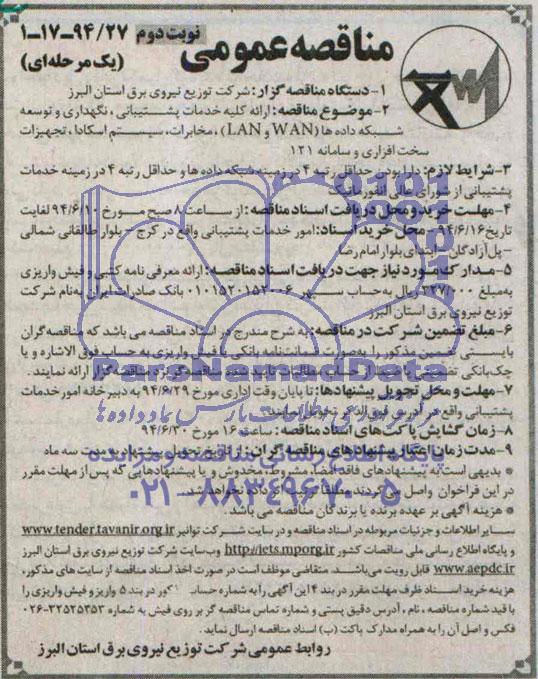 مناقصه عمومی نوبت دوم ۱-۱۷-۹۴/۲۷
(یک مرحله‌ای)
۱-دستگاه مناقصه گزار: شرکت توزیع نیروی برق استان البرز
۲-موضوع مناقصه: ارائه کلیه خدمات پشتیبانی، نگهداری و توسعه
شبکه داده ها (WAN و LAN)، مخابرات، سیستم اسکادا، تجهیزات
سخت افزاری و سامانه ۱۲۱
۳-شرایط لازم: دارا بودن حداقل رتبه ۴ در زمینه شبکه داده ها و حداقل رتبه ۴ در زمینه خدمات
پشتیبانی از شورای عالی انفورماتیک
۴-مهلت خرید و محل دریافت اسناد مناقصه: از ساعت ۸ صبح مورخ ۹۴/۶/۱۰ لغایت
تاریخ ۹۴/۶/۱۶- محل خرید اسناد: امور خدمات پشتیبانی واقع در کرج - بلوار طالقانی شمالی
- پل آزادگان - ابتدای بلوار امام رضا
۵-مدارک مورد نیاز جهت دریافت اسناد مناقصه: ارائه معرفی نامه کتبی و فیش واریزی
به‌مبلغ ۳۲۷/۰۰۰ ریال به‌حساب سپهر ۰۱۰۱۵۲۰۱۵۲۰۰۶ بانک صادرات ایران به‌نام شرکت
توزیع نیروی برق استان البرز
۶-مبلغ تضمین شرکت در مناقصه: به شرح مندرج در اسناد مناقصه می باشد که مناقصه گران
بایستی تضمین مذکور را به‌صورت ضمانت‌نامه بانکی یا فیش واریزی به حساب فوق الاشاره و یا
چک بانکی تضمینی یا ضمانت از محل مطالبات تایید شده مناقصه گر نزد مناقصه گزار ارائه نمایند.
۷-مهلت و محل تحویل پیشنهادها: تا پایان وقت اداری مورخ ۹۴/۶/۲۹ به دبیرخانه امور خدمات
پشتیبانی واقع در آدرس فوق الذکر تحویل نمایند.
۸-زمان گشایش پاکت های اسناد مناقصه: ساعت ۱۶ مورخ ۹۴/۶/۳۰
۹-مدت زمان اعتبار پیشنهادهای مناقصه گران: از تاریخ تحویل پیشنهاد به مدت سه ماه
* بدیهی است به پیشنهادهای فاقد امضا، مشروط، مخدوش و یا پیشنهادهایی که پس از مهلت مقرر
در این فراخوان واصل می گردند، مطلقا ترتیب اثر داده نخواهد شد.
* هزینه آگهی بر عهده برنده یا برندگان مناقصه می باشد.
سایر اطلاعات و جزئیات مربوطه در اسناد مناقصه و در سایت شرکت توانیر www.tender.tavanir.org.ir
و پایگاه اطلاع رسانی ملی مناقصات کشور http://iets.mporg.ir وب‌سایت شرکت توزیع نیروی برق استان البرز
www.aepdc.ir قابل رویت می‌باشد. متقاضی موظف است در صورت اخذ اسناد مناقصه از سایت های مذکور،
هزینه خرید اسناد ظرف مهلت مقرر در بند ۴ این آگهی را به شماره حساب کور در بند ۵ واریز و فیش واریزی را
با قید شماره مناقصه، نام، آدرس دقیق پستی و شماره تماس مناقصه گر بر روی فیش به شماره ۳۲۵۲۵۳۵۳-۰۲۶
فکس و اصل آن را به همراه مدارک پاکت (ب) اسناد مناقصه ارسال نماید.
روابط عمومی شرکت توزیع نیروی برق استان البرز
ParsNamadData
پایگاه اطلاع رسانی مناقصه و مزایده
۰۲۱-۸۸۳۴۹۶۷۰-۵